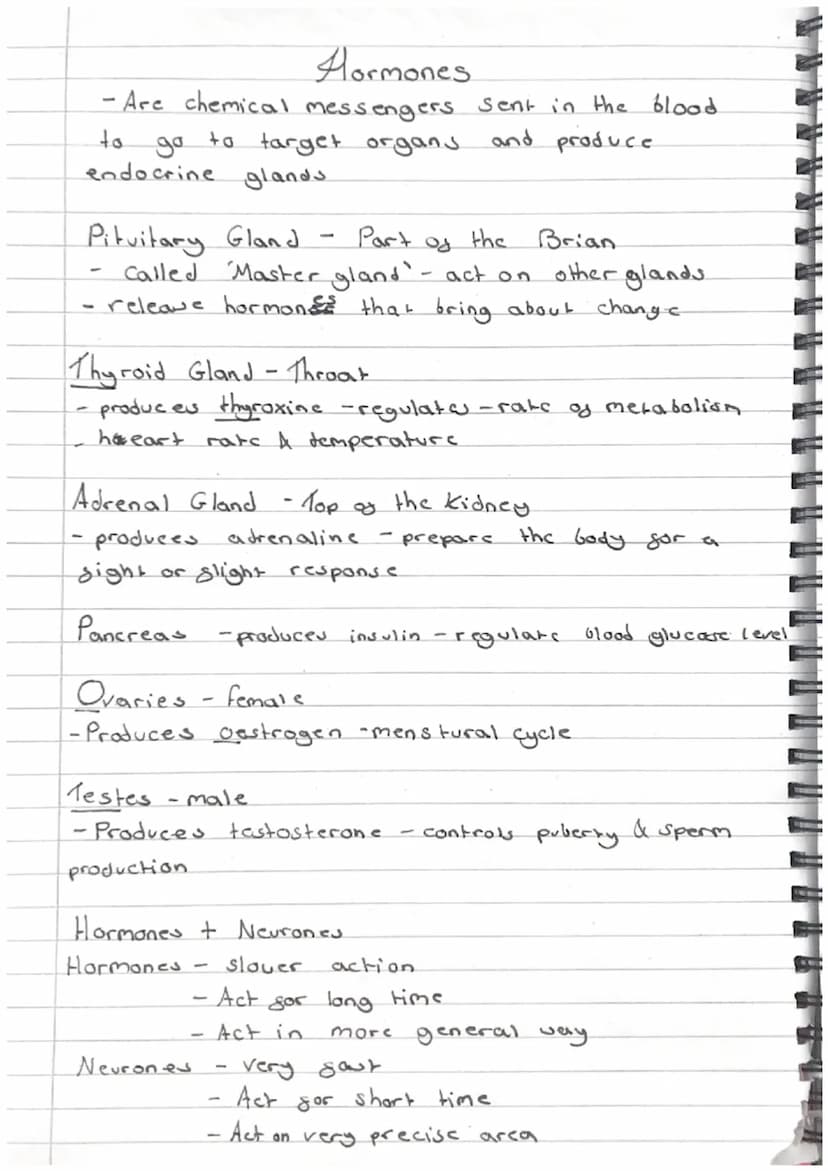 Hormones
- Are chemical messengers sent in the blood
to go to target organs and produce
endocrine glands
Pituitary Gland - Part of the Brian
- called 'Master gland' - act on other glands
- release hormones that bring about change
Thyroid Gland - Throat
- produces thyroxine - regulates - rate of metabolism
- heart rate & temperature
Adrenal Gland - Top of the kidney
- produces adrenaline - prepare the body for a
fight or flight response
Pancreas - produces insulin - regulate blood glucose level
Ovaries - female
- Produces oestrogen - menstural cycle
Testes - male
- Produces testosterone - controls puberty & sperm
production
Hormones + Neurones
Hormones - slower action
- Act for long time
- Act in more general way
Neurones - very fast
- Act for short time
- Act on very precise area